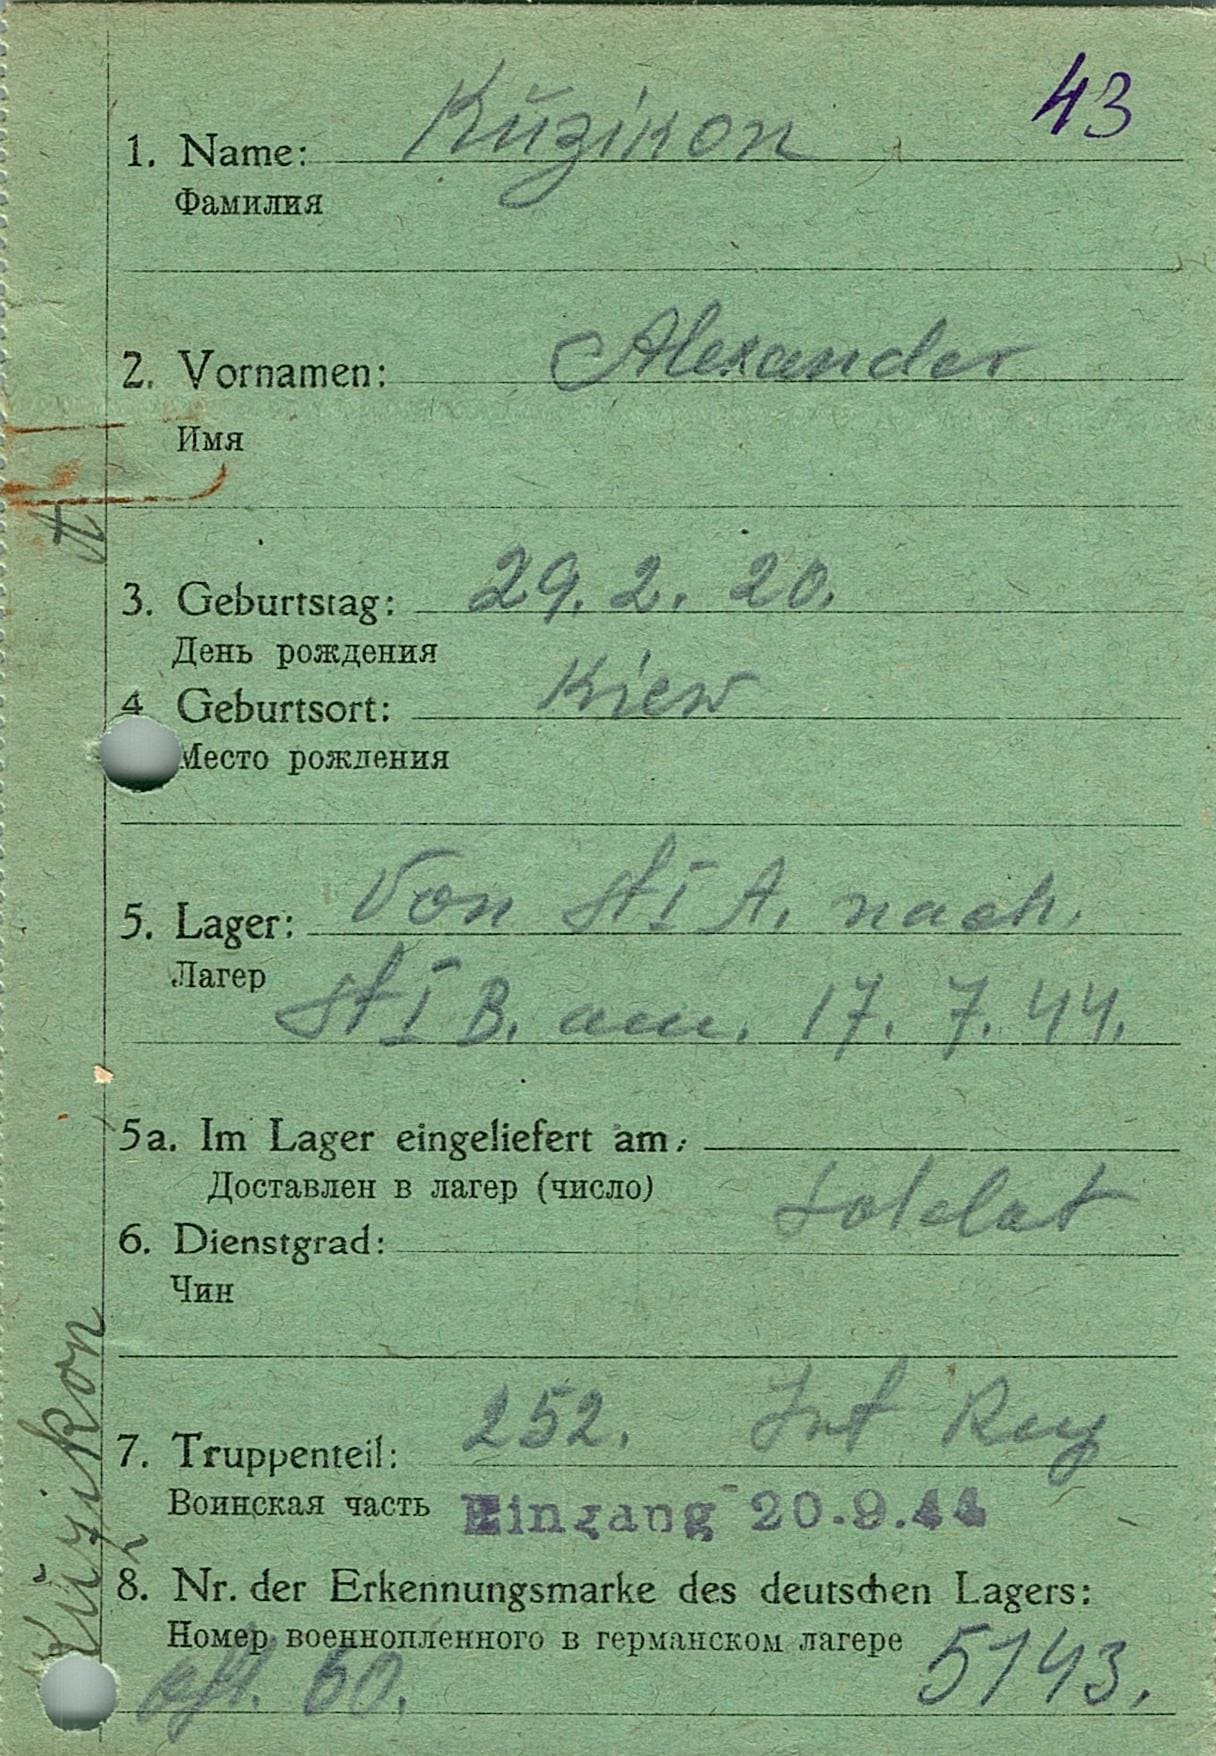 43
1. Name: Kŭzikon
Фамилия
2. Vornamen: Alexander
Имя
3. Geburtstag: 29. 2. 20.
День рождения
4 Geburtsort: Kiew
Место рождения
5. Lager: Von St I A. nach.
Лагер
St I B. am. 17. 7. 44.
5a. Im Lager eingeliefert am:
Доставлен в лагер (число)
6. Dienstgrad: Soldat
Чин
7. Truppenteil: 252. Inf Reg
Воинская часть Eingang 20.9.44
8. Nr. der Erkennungsmarke des deutschen Lagers:
Номер военнопленного в германском лагере 5143.
60.
Kŭzikon